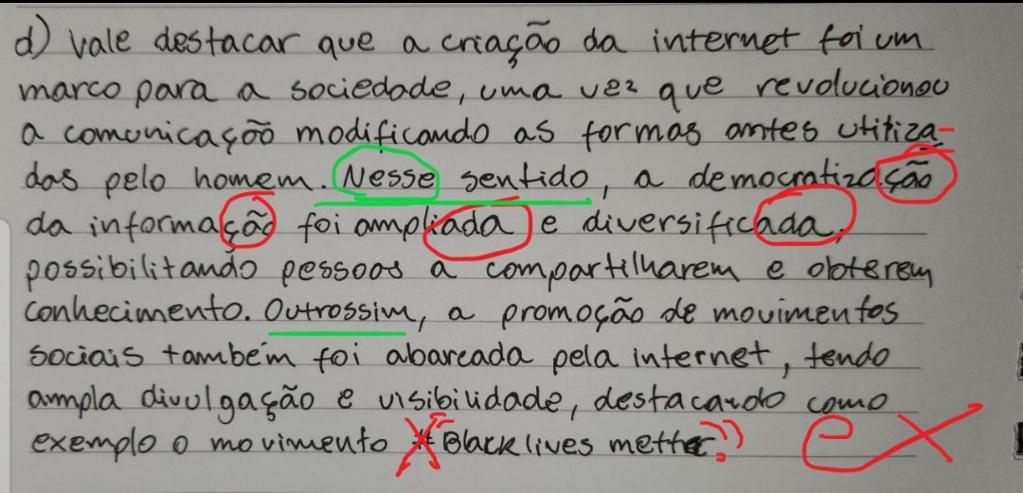 d) Vale destacar que a criação da internet foi um
marco para a sociedade, uma vez que revolucionou
a comunicação modificando as formas antes utiliza-
das pelo homem. Nesse sentido, a democratização
da informação foi ampliada e diversificada,
possibilitando pessoas a compartilharem e obterem
conhecimento. Outrossim, a promoção de movimentos
sociais também foi abarcada pela internet, tendo
ampla divulgação e visibilidade, destacando como
exemplo o movimento # "Black lives metter."
ex